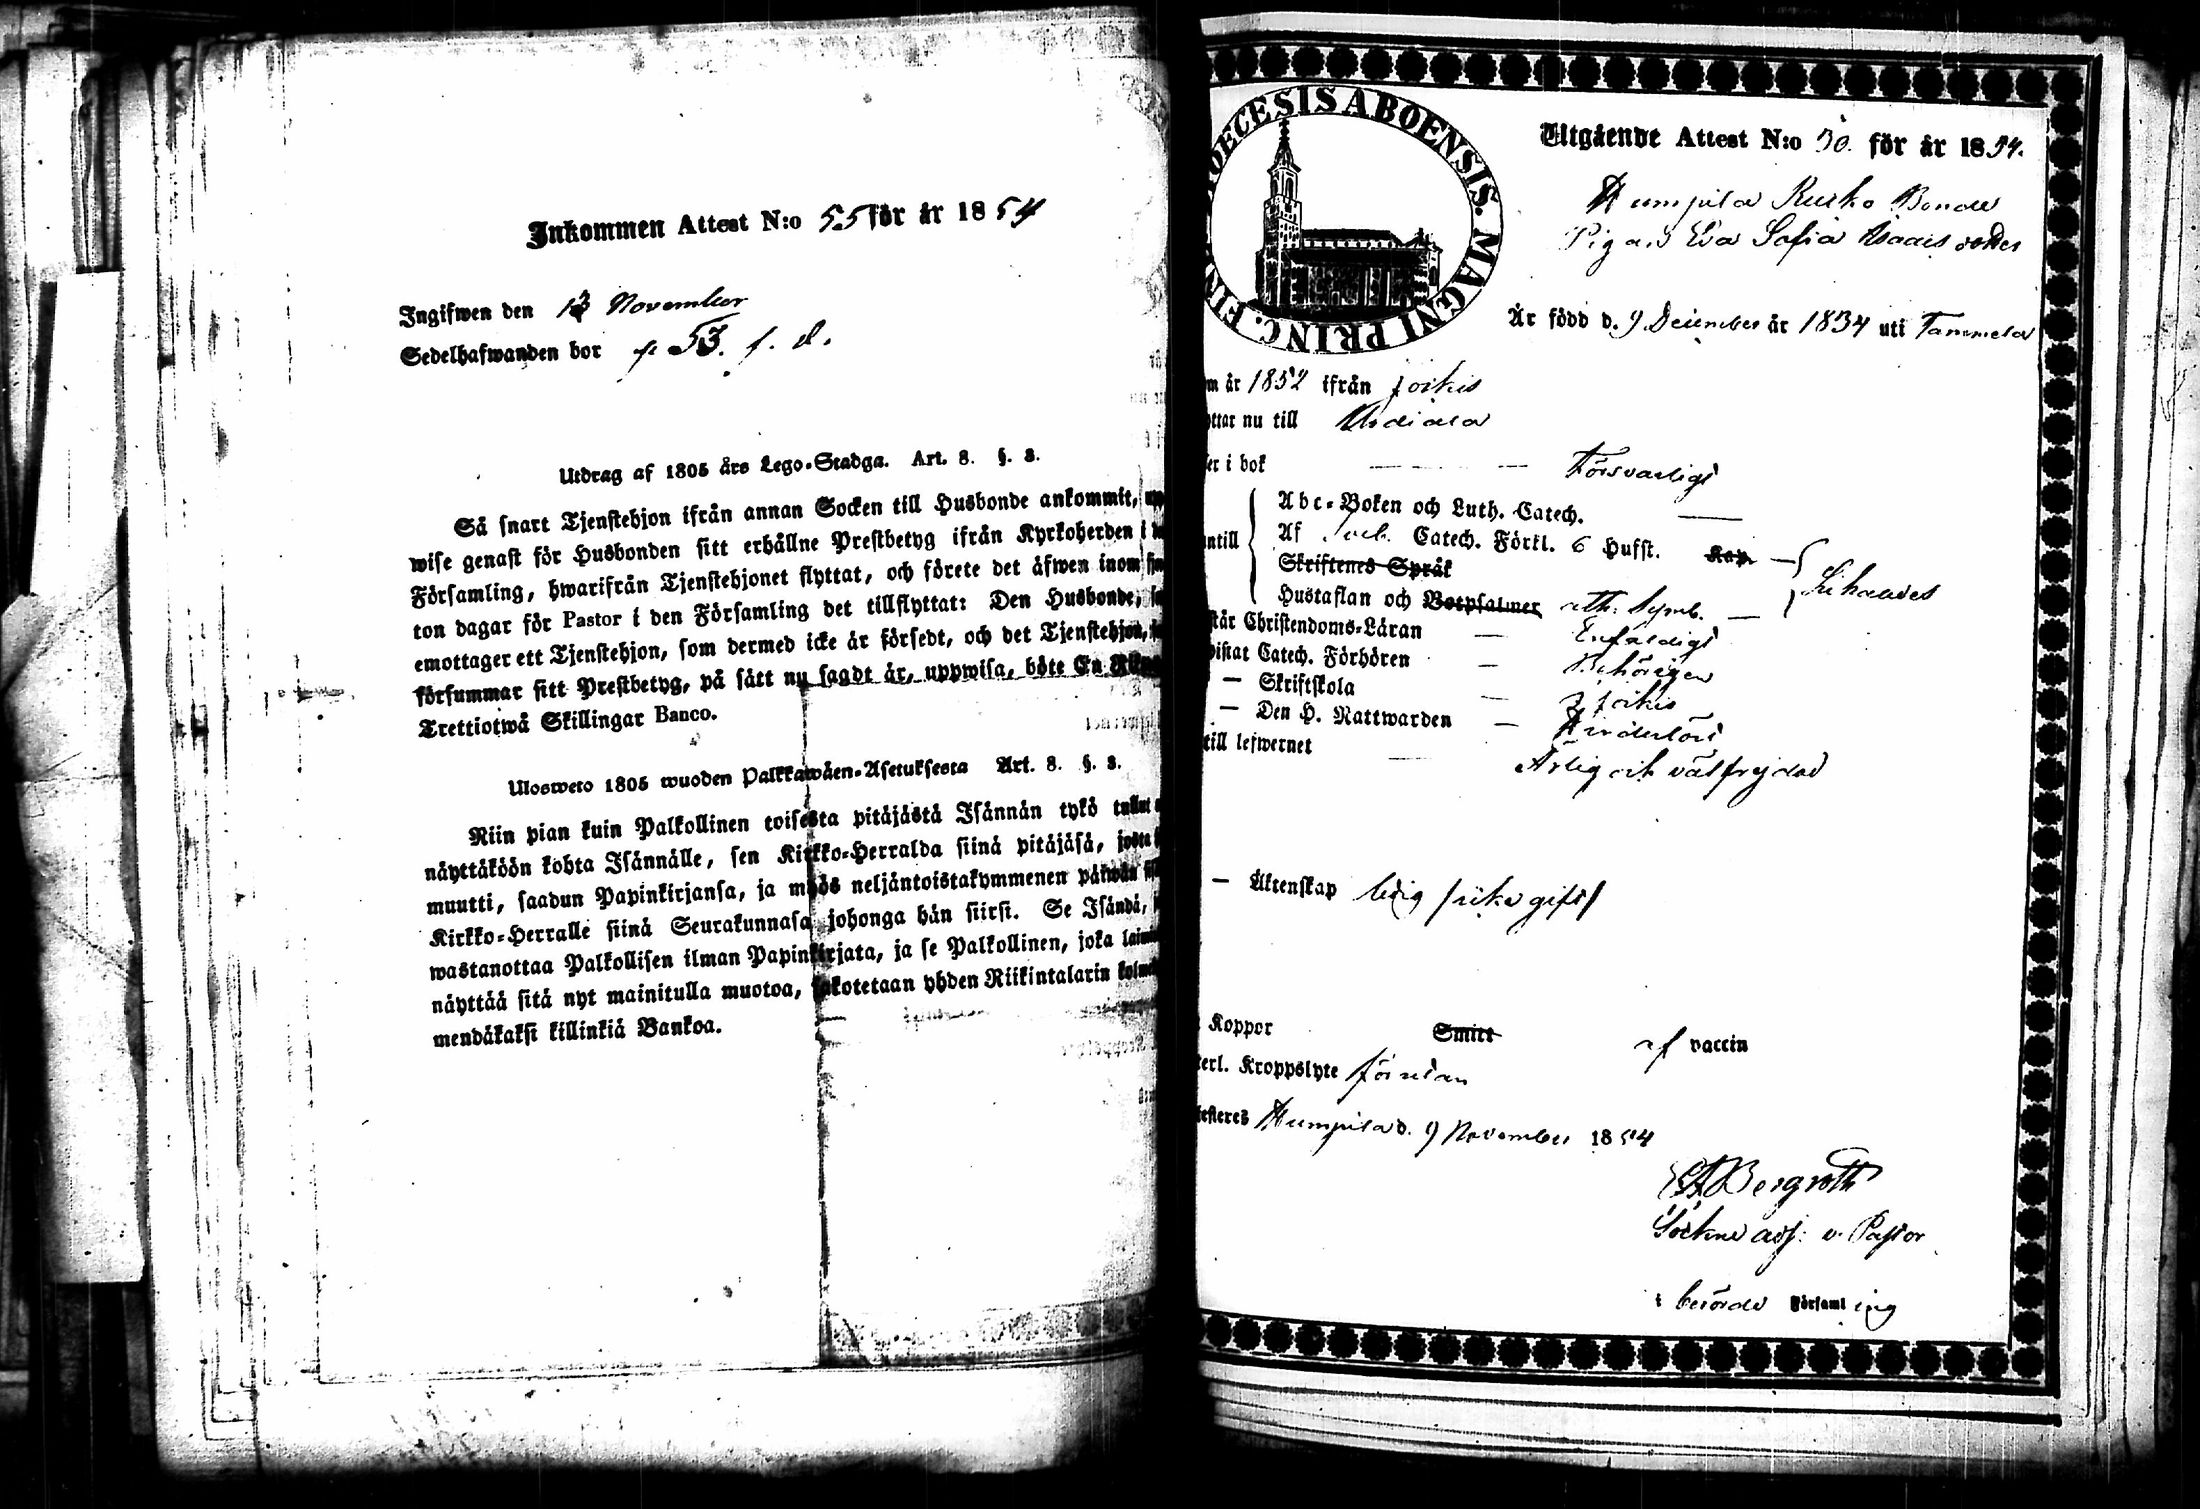 Inkommen Attest N:o 55 för år 1854
Ingifwen den 13 November
Sedelhafwanden bor p 53. f. d.
Utdrag af 1805 års Lego-Stadga. Art. 8. §. 8.
Så snart Tjenstehjon ifrån annan Socken till Husbonde ankommit,
wise genast för Husbonden sitt erhållne Prestbetyg ifrån Kyrkoherden i
Församling, hwarifrån Tjenstehjonet flyttat, och förete det äfwen inom
ton dagar för Pastor i den Församling det tillflyttat: Den Husbonde,
emottager ett Tjenstehjon, som dermed icke är försedt, och det Tjenstehjon,
försummar sitt Prestbetyg, på sätt nu sagdt är, uppwisa, böte En
Trettiotwå Skillingar Banco.
Ulosweto 1805 wuoden Palkkawäen-Asetuksesta Art. 8. §. 8.
Niin pian kuin Palkollinen toisesta pitäjästä Isännän tykö tullut
näyttäköön kohta Isännälle, sen Kirkko-Herralda siinä pitäjäsä, josta
muutti, saadun Papinkirjansa, ja myös neljäntoistakymmenen päiwän
Kirkko-Herralle siinä Seurakunnasa johonga hän siirsi. Se Isändä,
wastanottaa Palkollisen ilman Papinkirjata, ja se Palkollinen, joka
näyttää sitä nyt mainitulla muotoa, sakotetaan yhden Riikintalarin
mendäkaksi killinkiä Bankoa.
DIOECESIS ABOENSIS. MAGNI PRINC. FIN
Utgående Attest N:o 30. för år 1854.
Humpila Kurko Bonde
Pigan Eva Sofia Isaacs dotter
Är född d. 9 December år 1834 uti Tammela
m år 1852 ifrån Jockis
ttar nu till Urdiala
er i bok — — Försvarligt
Abc-Boken och Luth. Catech. —
ntill Af Catech. Förkl. 6 Hufst. Kap. —
Skriftenes Språk
Hustaflan och Botpsalmer ath. Symb. —
står Christendoms-Läran — Enfaldigt
wistat Catech. Förhören — Behörigen
— Skriftskola — i Jockis
— Den H. Nattwarden — Hinderlöst
till lefwernet — Ärlig och välfrejdad
— Äktenskap ledig /icke gift/
Koppor Smitt af vaccin
terl. Kroppslyte förutan
testeres Humpila d. 9 November 1854
Bergroth
Sockne adj. v. Pastor
i berörde Församling